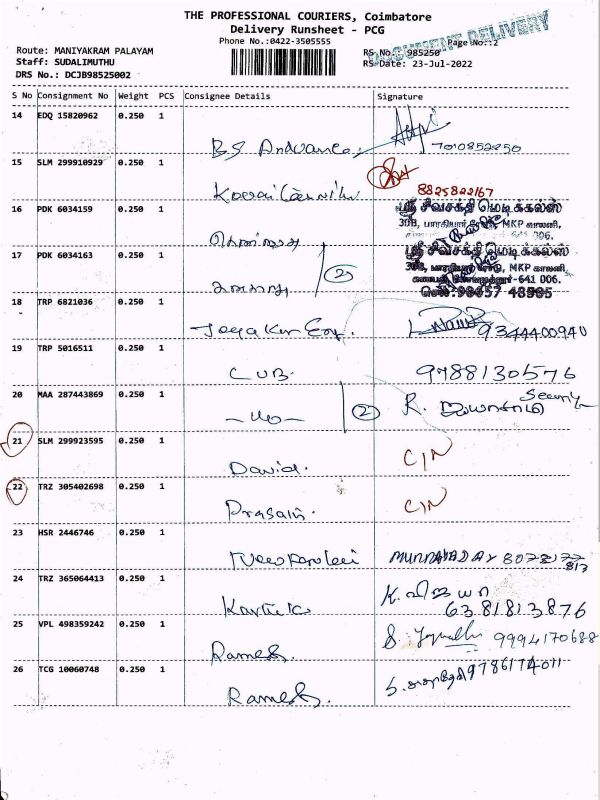 THE PROFESSIONAL COURIERS, Coimbatore
Delivery Runsheet - PCG
Phone No.:0422-3505555
DOCUMENT DELIVERY
Page No.:2
Route: MANIYAKRAM PALAYAM
RS No: 985250
Staff: SUDALIMUTHU
RS Date: 23-Jul-2022
DRS No.: DCJB98525002
S No Consignment No Weight PCS Consignee Details Signature
14 EDQ 15820962 0.250 1
7010852250
15 SLM 299910929 0.250 1
8825822167
16 PDK 6034159 0.250 1
ஸ்ரீ சிவசக்தி மெடிக்கல்ஸ்
30B, பாரதியார் ரோடு, MKP காலனி,
641 006.
17 PDK 6034163 0.250 1
ஸ்ரீ சிவசக்தி மெடிக்கல்ஸ்
30B, பாரதியார் ரோடு, MKP காலனி,
கணபதி, கோயமுத்தூர்-641 006.
2
18 TRP 6821036 0.250 1
9344400940
19 TRP 5016511 0.250 1
CUB.
9788130576
20 MAA 287443869 0.250 1
2
R.
21 SLM 299923595 0.250 1
David.
C/N
22 TRZ 305402698 0.250 1
C/N
23 HSR 2446746 0.250 1
24 TRZ 365064413 0.250 1
Kartick
K.
6381813876
25 VPL 498359242 0.250 1
Ramesh.
9994170688
26 TCG 10060748 0.250 1
Ramesh.
9786174011